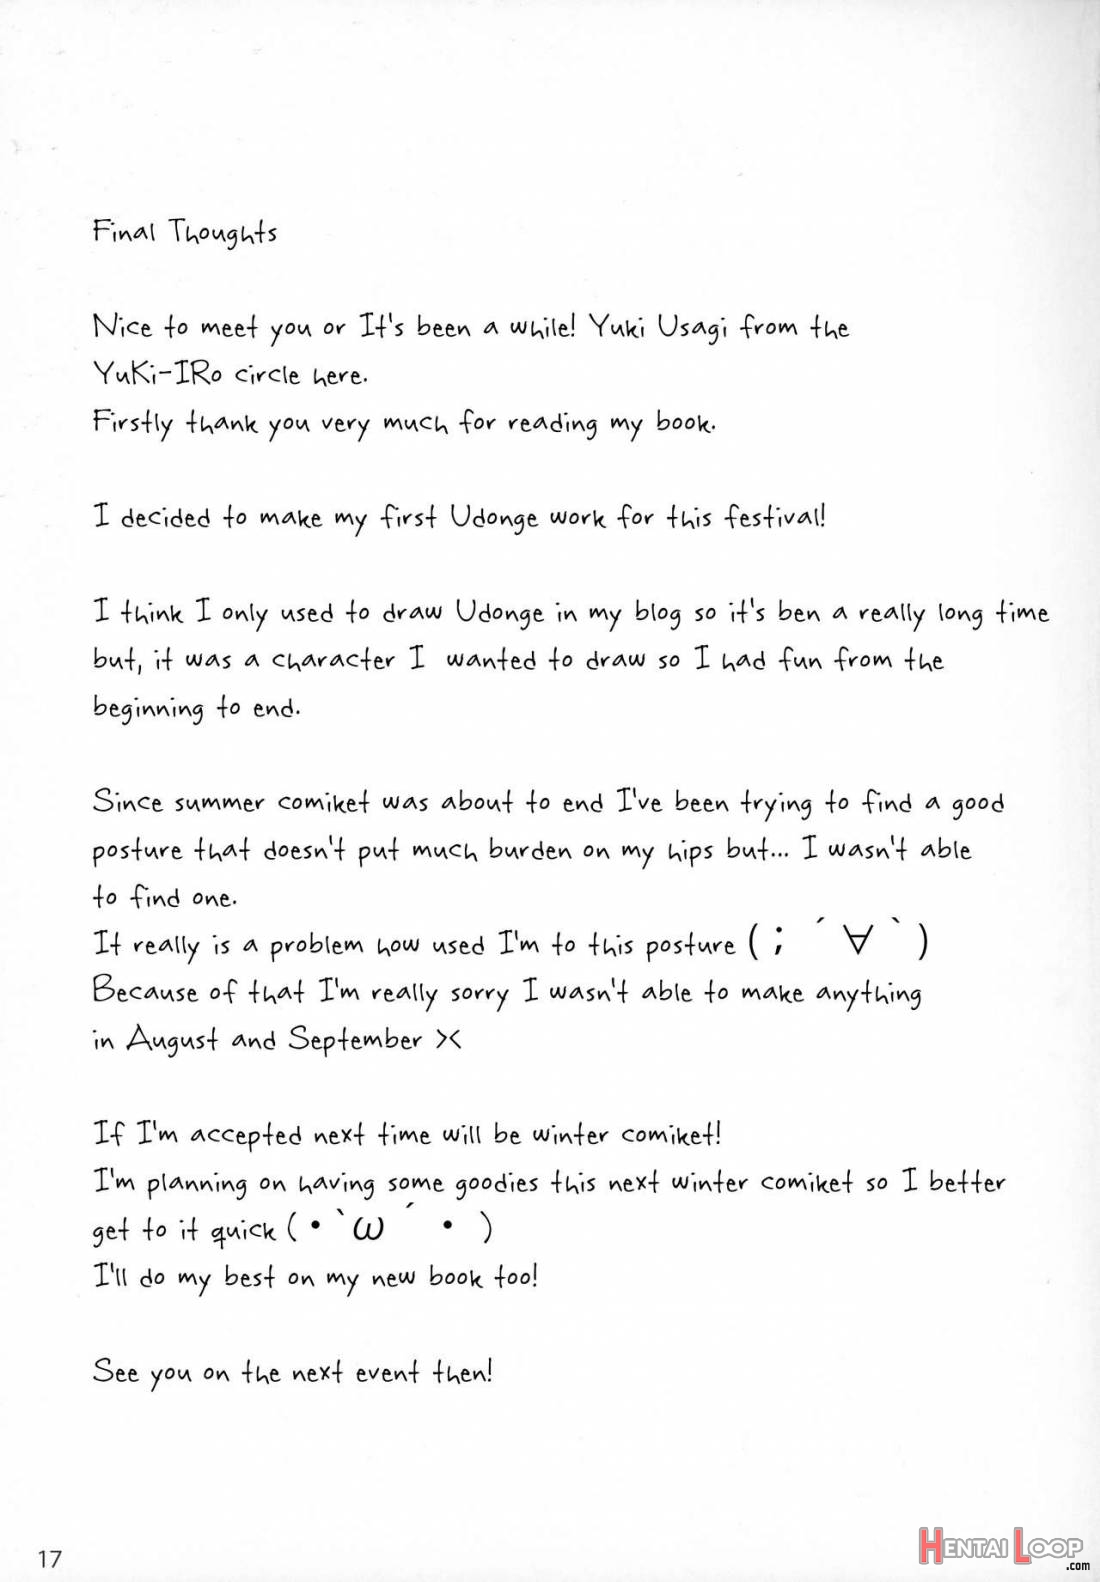 Final Thoughts
Nice to meet you or It's been a while! Yuki Usagi from the
YuKi-IRo circle here.
Firstly thank you very much for reading my book.
I decided to make my first Udonge work for this festival!
I think I only used to draw Udonge in my blog so it's ben a really long time
but, it was a character I wanted to draw so I had fun from the
beginning to end.
Since summer comiket was about to end I've been trying to find a good
posture that doesn't put much burden on my hips but... I wasn't able
to find one.
It really is a problem how used I'm to this posture (；´∀｀)
Because of that I'm really sorry I wasn't able to make anything
in August and September ><
If I'm accepted next time will be winter comiket!
I'm planning on having some goodies this next winter comiket so I better
get to it quick (・｀ω´・)
I'll do my best on my new book too!
See you on the next event then!
17
HENTAI LOOP
.com